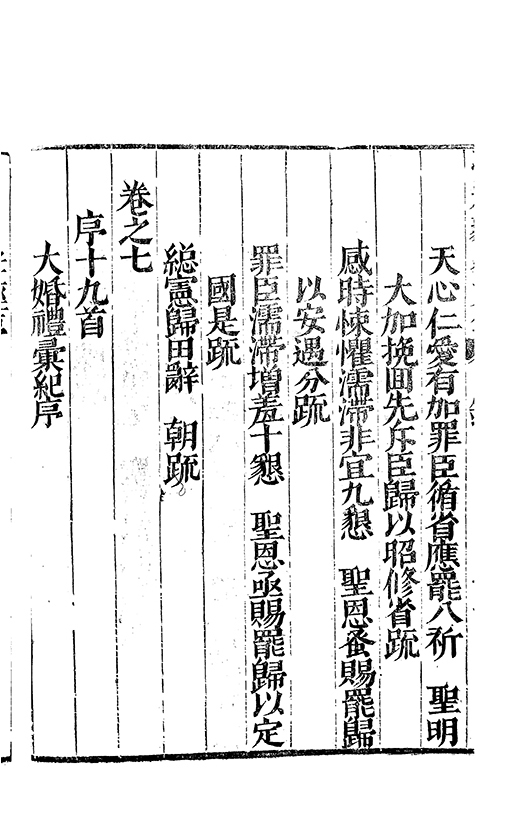 天心仁愛有加罪臣循省應罷八祈　聖明
大加挽回先斥臣歸以昭修省疏
感時悚懼濡滯非宜九懇　聖恩蚤賜罷歸
以安遇分疏
罪臣濡滯增羞十懇　聖恩亟賜罷歸以定
國是疏
総憲歸田辭　朝疏
卷之七
序十九首
大婚禮彙紀序